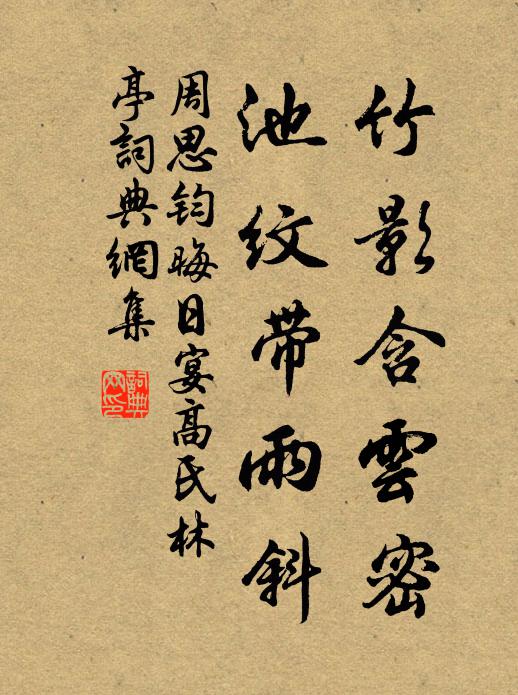 竹影含雲密
池紋帶雨斜
周思鈞晦日宴高氏林
亭詞典網集
詞典網印